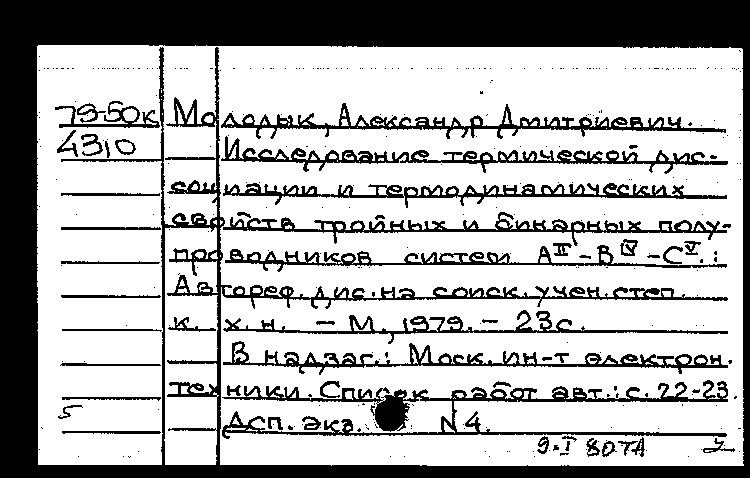 79-50к Молодык, Александр Дмитриевич.
4310 Исследование термической дис-
социации и термодинамических
свойств тройных и бинарных полу-
проводников систем A^II-B^IV-C^V.:
Автореф. дис. на соиск. учен. степ.
к. х. н. - М., 1979. - 23с.
В надзаг.: Моск. ин-т электрон.
техники. Список работ авт.: с. 22-23.
5 Дсп. экз. N4.
9.I 80